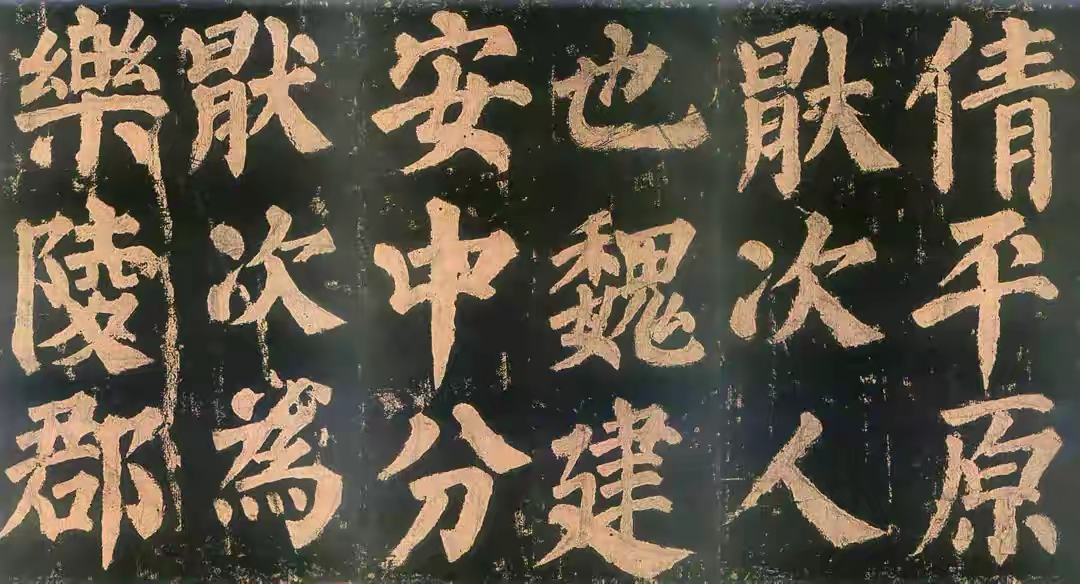 倩平原
猒次人
也魏建
安中分
猒次為
樂陵郡